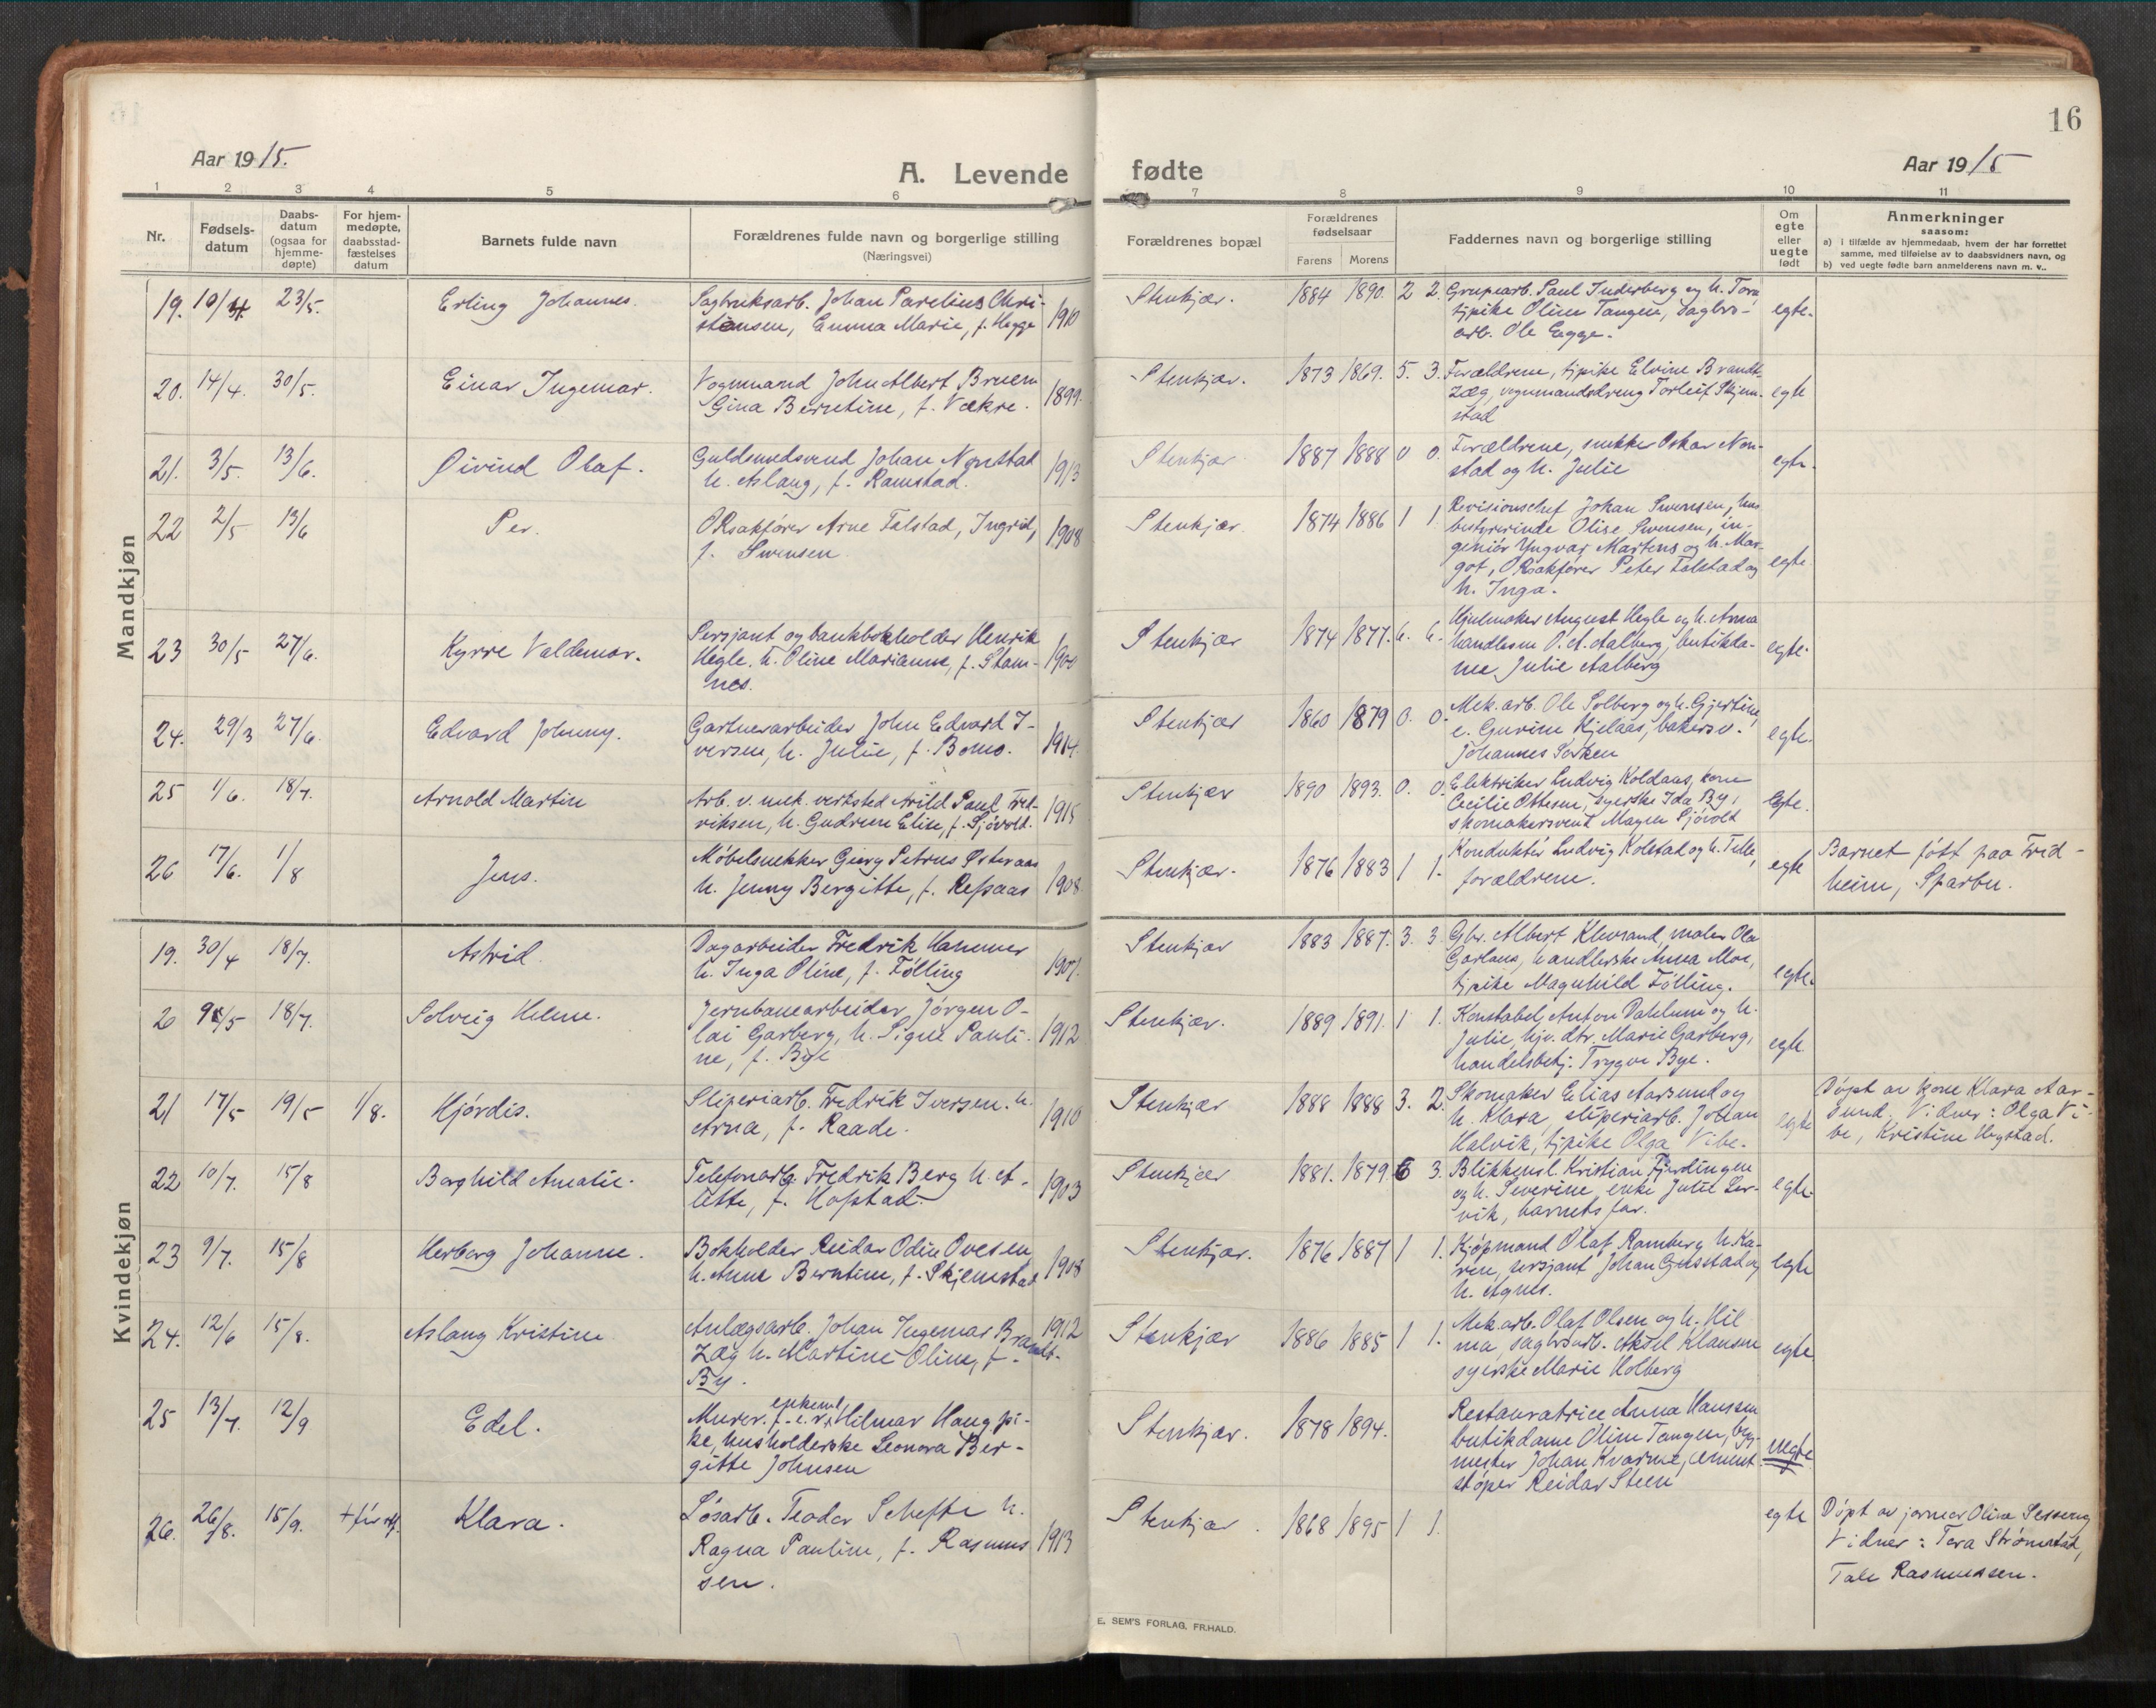 16
Aar 1915.
A. Levende
fødte
Aar 1915
1 2 3 4 5 6 7 8 9 10 11
Nr.
Fødsels-
datum
Daabs-
datum
(ogsaa for
hjemme-
døpte)
For hjem-
medøpte,
daabsstad-
fæstelses
datum
Barnets fulde navn
Forældrenes fulde navn og borgerlige stilling
(Næringsvei)
Forældrenes bopæl
Forældrenes
fødselsaar
Farens Morens
Faddernes navn og borgerlige stilling
Om
egte
eller
uegte
født
Anmerkninger
saasom:
a) i tilfælde av hjemmedaab, hvem der har forrettet
samme, med tilføielse av to daabsvidners navn, og
b) ved uegte fødte barn anmelderens navn m. v..
Mandkjøn
19. 10/4. 23/5. Erling Johannes. Sagbruksarb. Johan Parelius Chri-
stensen, Emma Marie, f. Hegge 1910
Stenkjær. 1884 1890. 2 2. Grubearb. Paul Inderberg og h. Tora
tjpike Oline Tangen, dagbro-
arb. Ole Egge. egte.
20. 14/4. 30/5. Einar Ingemar. Vognmand John Albert Bruem
Gina Berntine, f. Vækre. 1899.
Stenkjær. 1873 1869. 5. 3. Forældrene, tjpike Elvine Brandt-
zæg, vognmandsdreng Torleif Skjem-
stad egte
21. 3/5. 13/6. Øivind Olaf. Guldsmedsvend Johan Nonstad
h. Aslaug, f. Ramstad. 1913
Stenkjær 1887 1888 0 0. Forældrene, snekker Oskar Non-
stad og h. Julie egte.
22 2/5 13/6 Per. ORsakfører Arne Falstad, Ingrid,
f. Swensen. 1908
Stenkjær. 1874 1886 1 1. Revisionschef Johan Swensen, hus
bestyrerinde Olise Swensen, in-
geniør Yngvar Martens og h. Mar-
got, ORsakfører Peter Falstad og
h. Inga. egte.
23 30/5 27/6. Kyrre Valdemar. Sersjant og bankbokholder Henrik
Hegle. h. Oline Marianne, f. Stam-
nes. 1904
Stenkjær 1874 1877. 6. 6. Hjulmaker August Hegle og h. Anna
handlesm O. A. Aalberg, butikda-
me Julie Aalberg egte.
24. 29/3 27/6. Edvard Johnny. Gartnerarbeider John Edvard I-
versen, h. Julie, f. Bomo. 1914.
Stenkjær 1860 1879 0. 0. Mek. arb. Ole Solberg og h. Gjertine,
e. Gurine Hjelaas, bakersv.
Johannes Sorken egte.
25 1/6. 18/7. Arnold Martin Arb. v. mek. verksted Arild Paul Fred-
riksen, h. Gudrun Elise, f. Sjøvold. 1915
Stenkjær 1890 1893. 0. 0. Elektriker Ludvig Koldaas, kone
Cecilie Ottesen, syerske Ida By,
skomakersvend Magne Sjøvold Egte.
26 17/6. 1/8 Jens. Møbelsnekker Georg Petrus Østeraas
h. Jenny Bergitte, f. Refsaas 1908.
Stenkjær. 1876 1883 1 1. Konduktør Ludvig Kolstad og h. Tille,
forældrene. egte Barnet født paa Frid-
heim, Sparbu.
Kvindekjøn
19. 30/4 18/7. Astrid. Dagarbeider Fredrik Hammer
h. Inga Oline, f. Følling 1907.
Stenkjær 1883 1887. 3. 3. Gbr. Albert Klevsand, maler Ole
Garlaus, handlerske Anna Moe,
tjpike Magnhild Følling. egte.
20 9/5 18/7. Solveig Helene. Jernbanearbeider Jørgen O-
lai Garberg, h. Signe Pauli-
ne, f. Bye 1912
Stenkjær. 1889 1891. 1 1. Konstabel Anton Dahlum og h.
Julie, hjv. dtr. Marie Garberg,
handelsbetj. Trygve Bye. egte.
21 17/5 19/5 1/8. Hjørdis. Sliperiarb. Fredrik Iversen. h.
Arna, f. Raade. 1910
Stenkjær 1888 1888 3. 2. Skomaker Elias Aarsund og
h. Klara, sliperiarb. Johan
Halvik, tjpike Olga Vibe. egte Døpt av kone Klara Aar-
sund. Vidner: Olga Vi-
be, Kristine Hegstad.
22 10/7. 15/8 Borghild Amalie. Telefonarb. Fredrik Berg h. A-
lette, f. Hopstad. 1903
Stenkjær 1881. 1879. 6 3. Blikkensl. Kristian Fjerdingen
og h. Severine, enke Julie Ler-
vik, barnets far. egte.
23 9/7. 15/8 Herborg Johanne. Bokholder Reidar Odin Ovesen,
h. Anne Berntine, f. Skjemstad 1908
Stenkjær. 1876 1887 1 1. Kjøpmand Olaf Ramberg h. Ka-
ren, sersjant Johan Gjesstad og
h. Agnes. egte
24. 12/6 15/8. Aslaug Kristine Anlægsarb. Johan Ingemar Brandt-
zæg h. Martine Oline, f.
By. 1912
Stenkjær 1886 1885 1 1. Mek. arb. Olaf Olsen og h. Hil
ma, sagbrarb. Aksel Klausen
syerske Marie Holberg egte.
25 13/7. 12/9 Edel. Murer. f. e. v. enkem. Hilmar Haug, pi-
ke, husholderske Leonora Ber-
gitte Johnsen
Stenkjær. 1878 1894. Restauratrice Anna Hanssen
butikdame Oline Tangen, byg-
mester Johan Kvarme, cement
støper Reidar Steen uegte
26. 26/8. 15/9. + før stf. Klara. Løsarb. Teodor Schefte h.
Ragna Pauline, f. Rasmus
sen. 1913
Stenkjær. 1868 1895 1 1. egte Døpt av jormor Oline Sesseng
Vidner: Tora Strømstad,
Tale Rasmussen.
E. SEM'S FORLAG, FR.HALD.